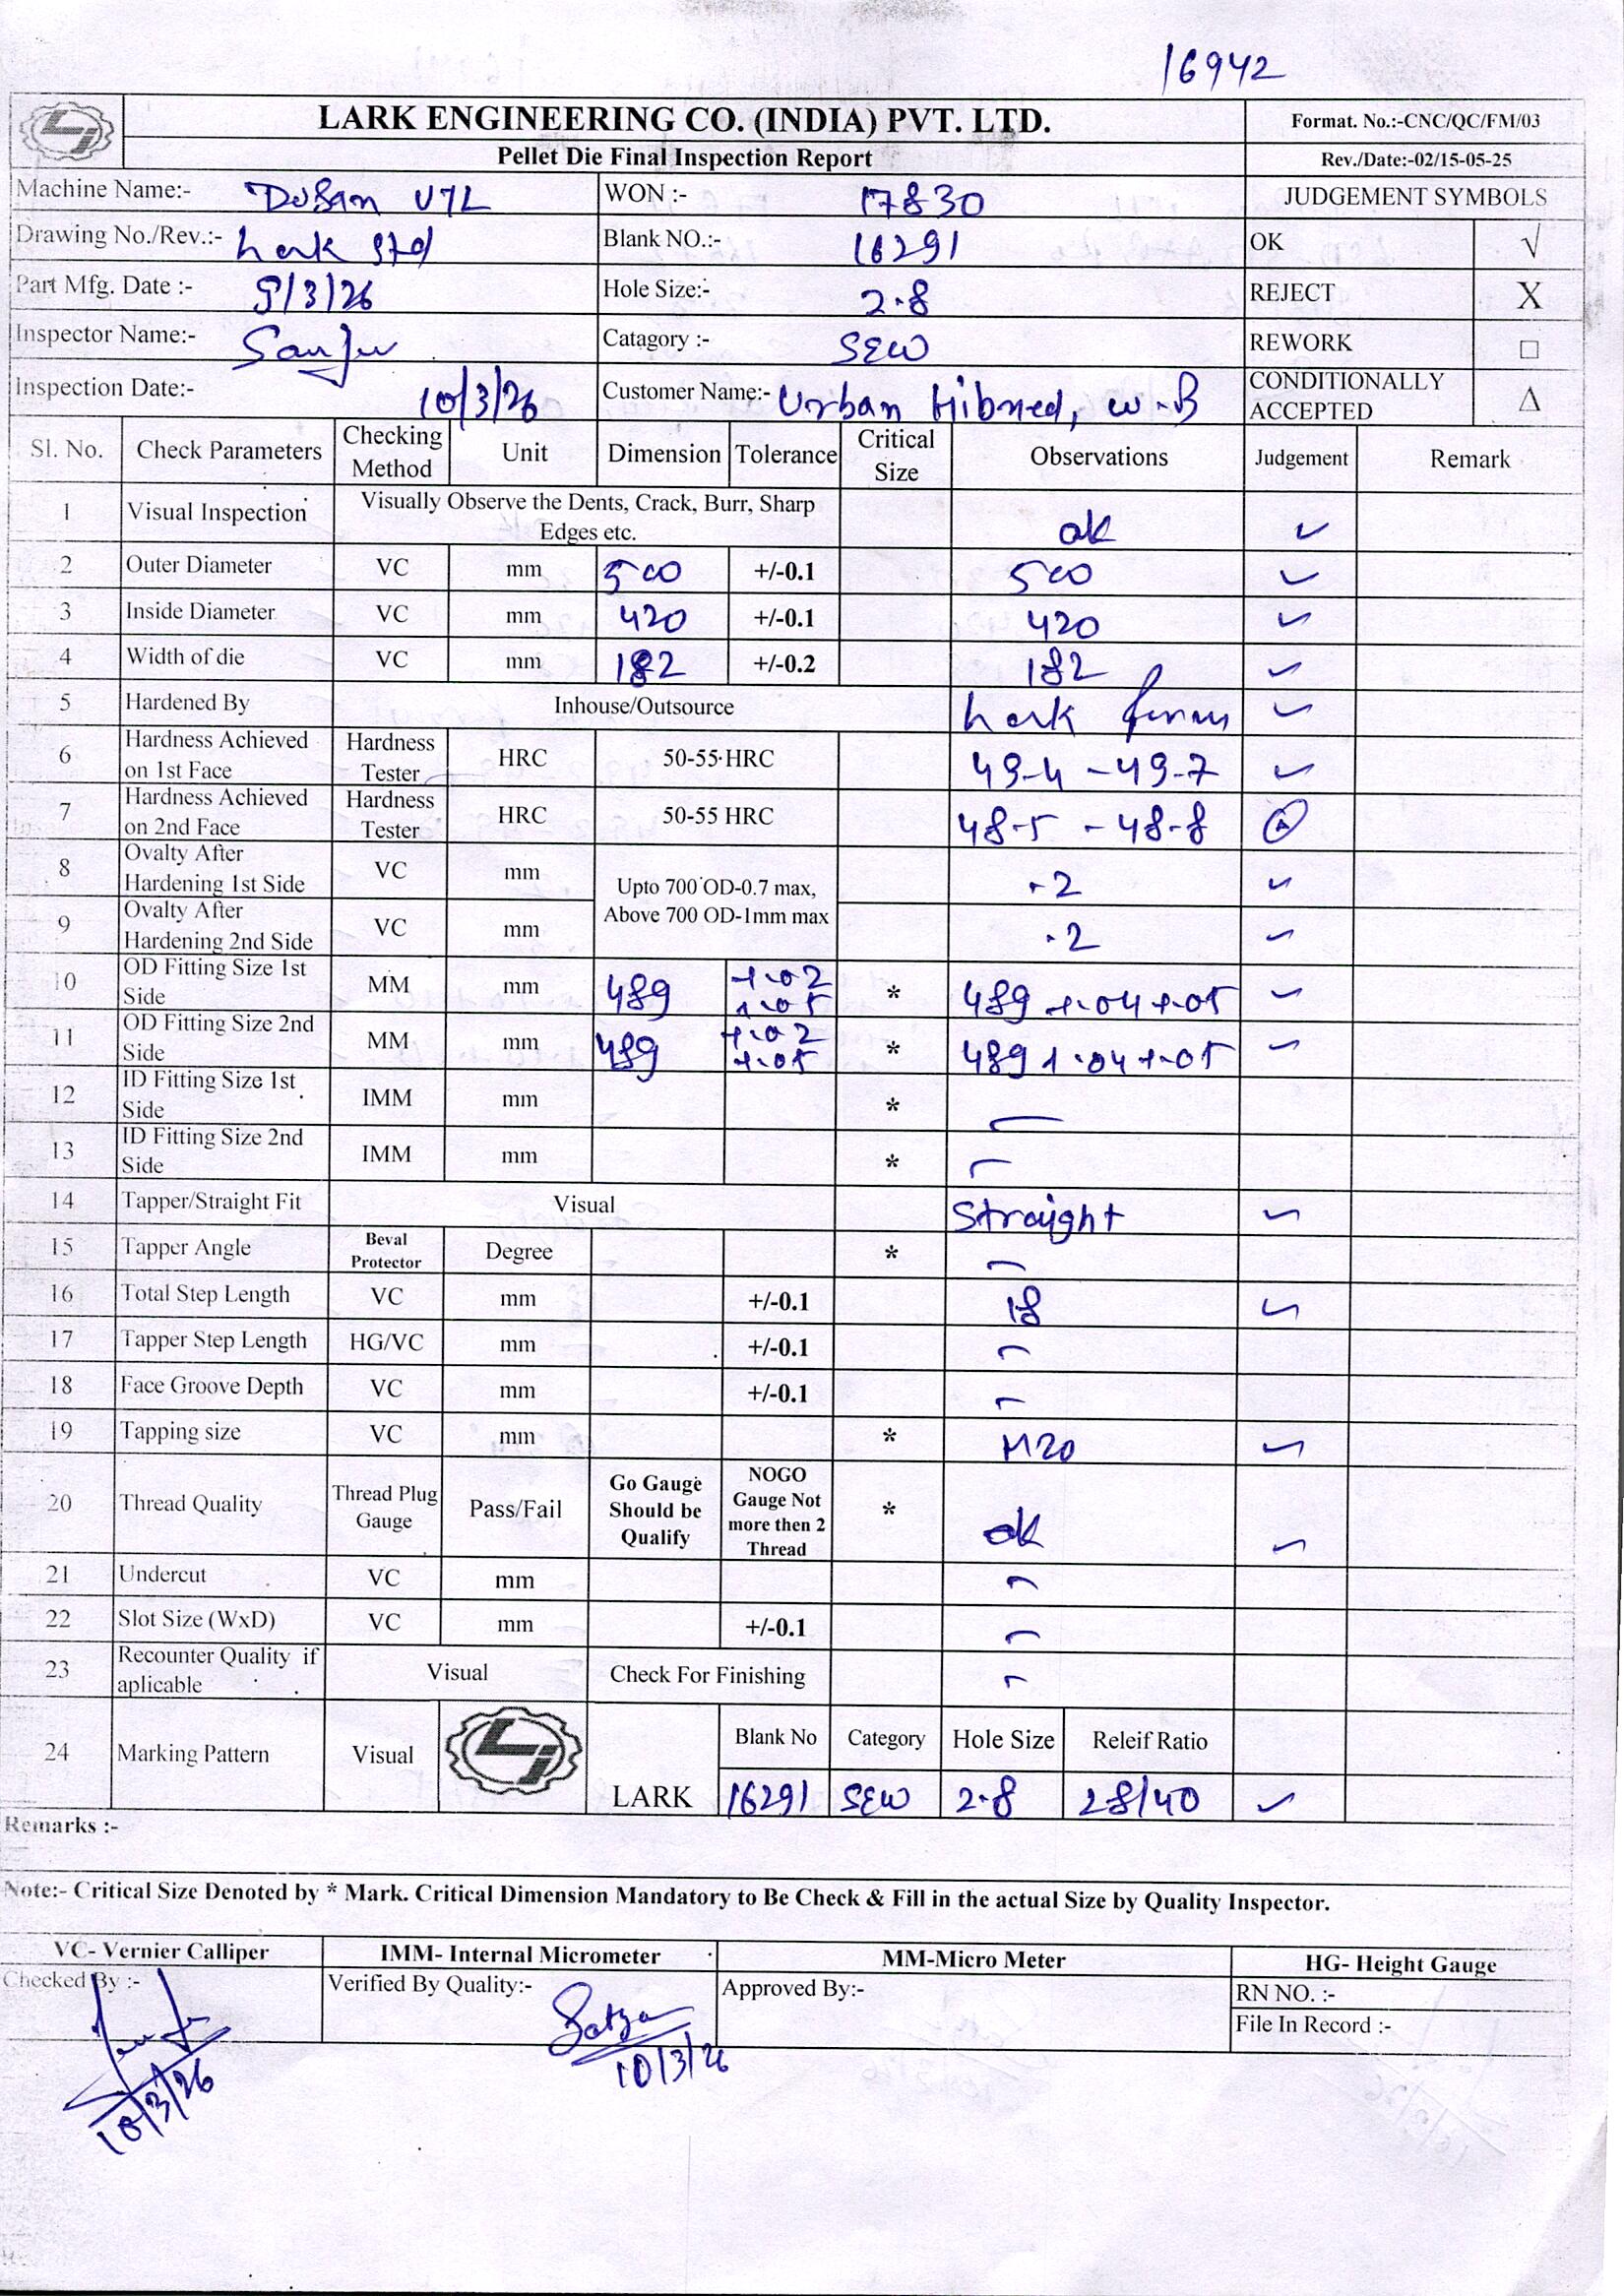 16942
LARK ENGINEERING CO. (INDIA) PVT. LTD.
Format. No.:-CNC/QC/FM/03
Pellet Die Final Inspection Report
Rev./Date:-02/15-05-25
Machine Name:- VTL WON :- 17830 JUDGEMENT SYMBOLS
Drawing No./Rev.:- Lark Std Blank NO.:- 16291 OK √
Part Mfg. Date :- 9/3/26 Hole Size:- 2.8 REJECT X
Inspector Name:- Sanju Catagory :- SEW REWORK □
Inspection Date:- 10/3/26 Customer Name:- Urban W.B CONDITIONALLY ACCEPTED Δ
Sl. No. Check Parameters Checking Method Unit Dimension Tolerance Critical Size Observations Judgement Remark
1 Visual Inspection Visually Observe the Dents, Crack, Burr, Sharp Edges etc. ok ✓
2 Outer Diameter VC mm 500 +/-0.1 500 ✓
3 Inside Diameter VC mm 420 +/-0.1 420 ✓
4 Width of die VC mm 182 +/-0.2 182 ✓
5 Hardened By Inhouse/Outsource Lark ✓
6 Hardness Achieved on 1st Face Hardness Tester HRC 50-55 HRC 49-4 - 49-7 ✓
7 Hardness Achieved on 2nd Face Hardness Tester HRC 50-55 HRC 48-5 - 48-8 Δ
8 Ovalty After Hardening 1st Side VC mm Upto 700 OD-0.7 max, Above 700 OD-1mm max .2 ✓
9 Ovalty After Hardening 2nd Side VC mm .2 ✓
10 OD Fitting Size 1st Side MM mm 489 +.02 +.05 * 489 +.04 +.05 ✓
11 OD Fitting Size 2nd Side MM mm 489 +.02 +.05 * 489 +.04 +.05 ✓
12 ID Fitting Size 1st Side IMM mm * —
13 ID Fitting Size 2nd Side IMM mm * —
14 Tapper/Straight Fit Visual Straight ✓
15 Tapper Angle Beval Protector Degree * —
16 Total Step Length VC mm +/-0.1 18 ✓
17 Tapper Step Length HG/VC mm +/-0.1 —
18 Face Groove Depth VC mm +/-0.1 —
19 Tapping size VC mm * M20 ✓
20 Thread Quality Thread Plug Gauge Pass/Fail Go Gauge Should be Qualify NOGO Gauge Not more then 2 Thread * ok ✓
21 Undercut VC mm —
22 Slot Size (WxD) VC mm +/-0.1 —
23 Recounter Quality if aplicable Visual Check For Finishing —
24 Marking Pattern Visual LARK Blank No Category Hole Size Releif Ratio
16291 SEW 2.8 28/40 ✓
Remarks :-
Note:- Critical Size Denoted by * Mark. Critical Dimension Mandatory to Be Check & Fill in the actual Size by Quality Inspector.
VC- Vernier Calliper IMM- Internal Micrometer MM-Micro Meter HG- Height Gauge
Checked By :- Verified By Quality:- Approved By:- RN NO. :-
File In Record :-
10/3/26 10/3/26